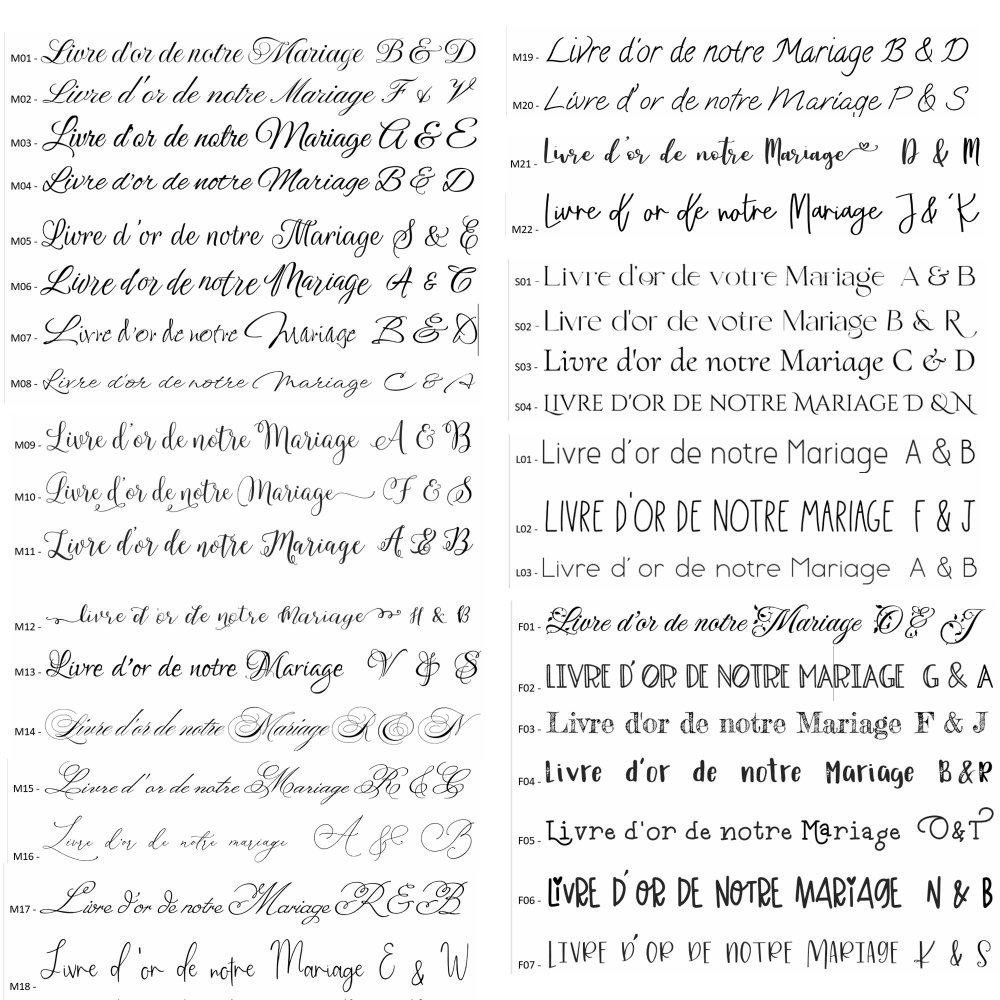 M01 - Livre d'or de notre Mariage B & D
M02 - Livre d'or de notre Mariage F & V
M03 - Livre d'or de notre Mariage A & E
M04 - Livre d'or de notre Mariage B & D
M05 - Livre d'or de notre Mariage S & E
M06 - Livre d'or de notre Mariage A & C
M07 - Livre d'or de notre Mariage B & D
M08 - Livre d'or de notre Mariage C & A
M09 - Livre d'or de notre Mariage A & B
M10 - Livre d'or de notre Mariage F & S
M11 - Livre d'or de notre Mariage A & B
M12 - livre d'or de notre Mariage H & B
M13 - Livre d'or de notre Mariage V & S
M14 - Livre d'or de notre Mariage R & N
M15 - Livre d'or de notre Mariage R & C
M16 - Livre d'or de notre mariage A & B
M17 - Livre d'or de notre Mariage R & B
M18 - Livre d'or de notre Mariage E & W
M19 - Livre d'or de notre Mariage B & D
M20 - Livre d'or de notre Mariage P & S
M21 - Livre d'or de notre Mariage D & M
M22 - Livre d'or de notre Mariage J & K
S01 - Livre d'or de votre Mariage A & B
S02 - Livre d'or de votre Mariage B & R
S03 - Livre d'or de notre Mariage C & D
S04 - LIVRE D'OR DE NOTRE MARIAGE D & N
L01 - Livre d'or de notre Mariage A & B
L02 - LIVRE D'OR DE NOTRE MARIAGE F & J
L03 - Livre d'or de notre Mariage A & B
F01 - Livre d'or de notre Mariage O & J
F02 - LIVRE D'OR DE NOTRE MARIAGE G & A
F03 - Livre d'or de notre Mariage F & J
F04 - Livre d'or de notre Mariage B & R
F05 - Livre d'or de notre Mariage O & T
F06 - LiVRE D'OR DE NOTRE MARiAGE N & B
F07 - LIVRE D'OR DE NOTRE MARIAGE K & S